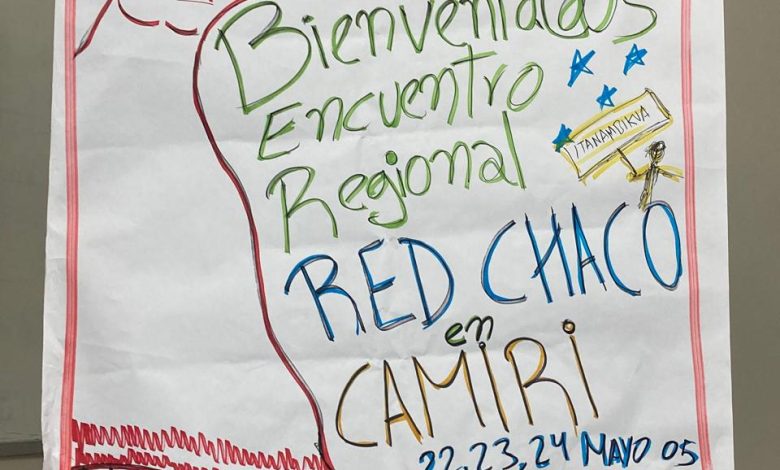 Bienvenidos
Encuentro
Regional
ITANAMBIKUA
RED CHACO
en
CAMIRI
22, 23, 24 MAYO 05